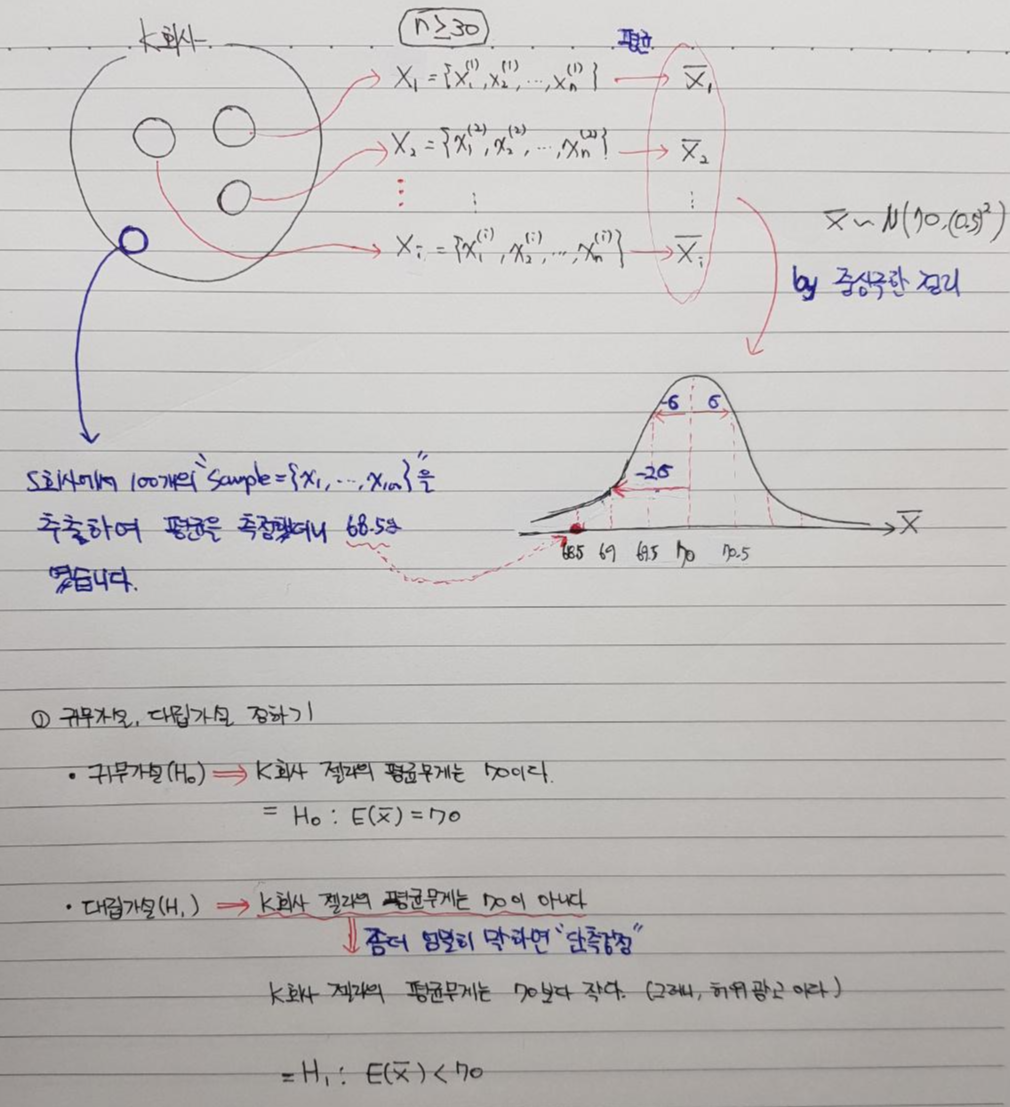 K회사
n≥30
평균
X₁ = {x₁⁽¹⁾, x₂⁽¹⁾, ⋯, xₙ⁽¹⁾} → X̄₁
X₂ = {x₁⁽²⁾, x₂⁽²⁾, ⋯, xₙ⁽²⁾} → X̄₂
⋮ ⋮ ⋮
Xᵢ = {x₁⁽ⁱ⁾, x₂⁽ⁱ⁾, ⋯, xₙ⁽ⁱ⁾} → X̄ᵢ
X̄ ~ N(70, (0.5)²)
by 중심극한 정리
-σ σ
-2σ
X̄
68.5 69 69.5 70 70.5
S회사에서 100개의 "Sample = {x₁, ⋯, x₁₀₀}"을
추출하여 평균을 측정했더니 68.5
였습니다.
① 귀무가설, 대립가설 정하기
• 귀무가설(H₀) ⇒ K회사 젤라의 평균무게는 70이다.
= H₀ : E(x̄) = 70
• 대립가설(H₁) ⇒ K회사 젤라의 평균무게는 70이 아니다
⇓ 좀더 엄밀히 말하면 "단측검정"
K회사 젤라의 평균무게는 70보다 작다. (그러니, 허위광고이다)
= H₁ : E(x̄) < 70